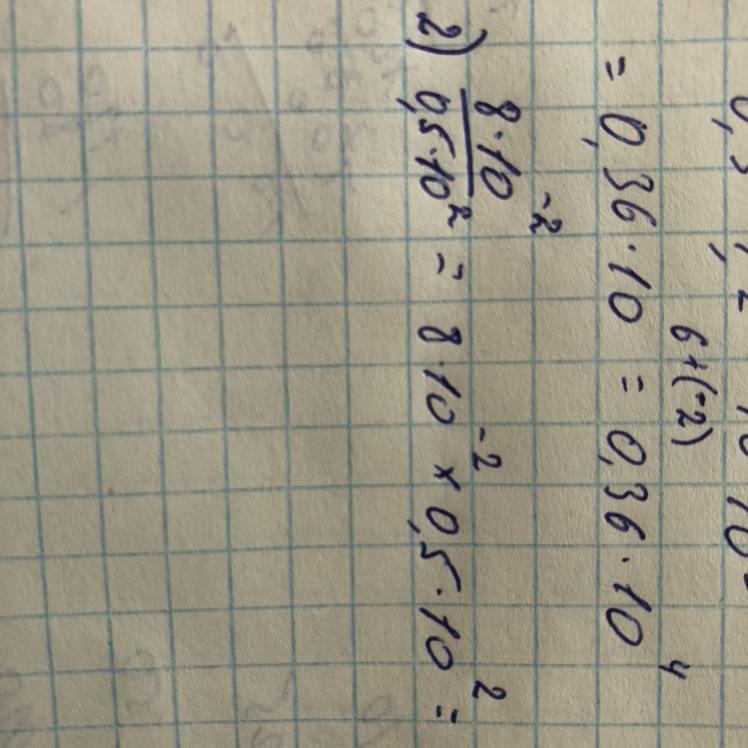 6+(-2)
= 0,36·10 = 0,36·10⁴
2) 8·10⁻² / 0,5·10² = 8·10⁻² × 0,5·10² =